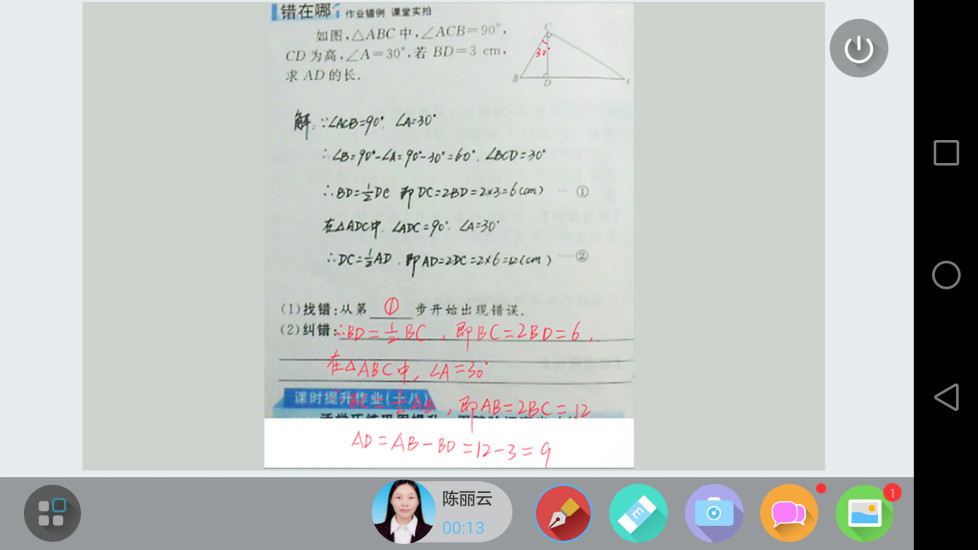 错在哪? 作业错例 课堂实拍
如图,△ABC中,∠ACB=90°,
CD为高,∠A=30°,若BD=3 cm,
求AD的长.
C
30°
B D
解:∵∠ACB=90°, ∠A=30°
∴∠B=90°-∠A=90°-30°=60°, ∠BCD=30°
∴BD=½DC 即DC=2BD=2×3=6(cm) ……①
在△ADC中, ∠ADC=90°, ∠A=30°
∴DC=½AD, 即AD=2DC=2×6=12(cm) ……②
(1)找错:从第 ① 步开始出现错误.
(2)纠错: ∴BD=½BC, 即BC=2BD=6,
在△ABC中, ∠A=30°
课时提升作业(十八)
BC=½AB, 即AB=2BC=12
AD=AB-BD=12-3=9
陈丽云
00:13
E
1